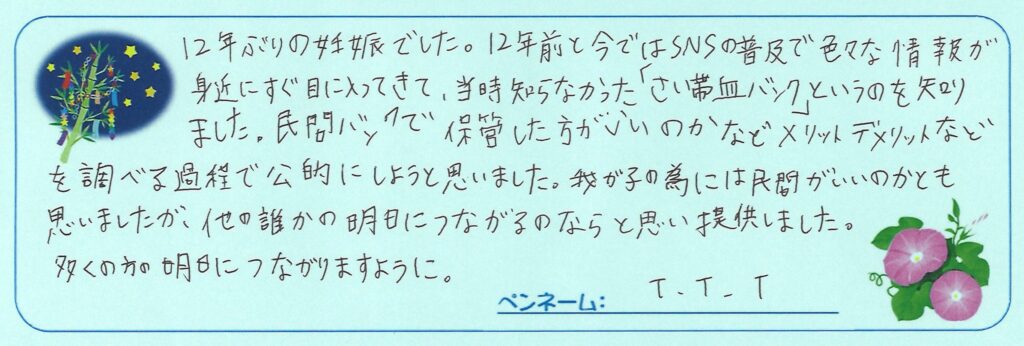 12年ぶりの妊娠でした。12年前と今ではSNSの普及で色々な情報が
身近にすぐ目に入ってきて、当時知らなかった「さい帯血バンク」というのを知り
ました。民間バンクで保管した方がいいのかなどメリットデメリットなど
を調べる過程で公的にしようと思いました。我が子の為には民間がいいのかとも
思いましたが、他の誰かの明日につながるのならと思い提供しました。
多くの方の明日につながりますように。
ペンネーム: T.T.T